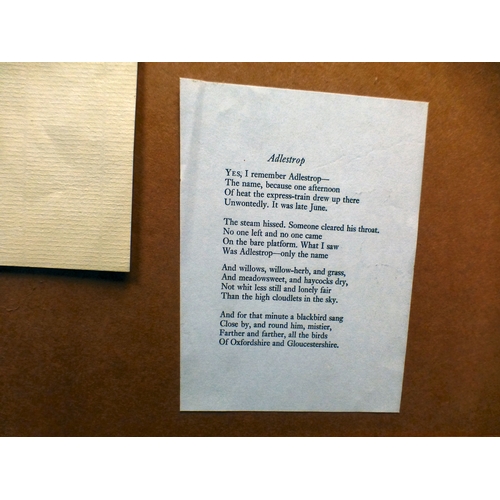 Adlestrop
YES, I remember Adlestrop—
The name, because one afternoon
Of heat the express-train drew up there
Unwontedly. It was late June.
The steam hissed. Someone cleared his throat.
No one left and no one came
On the bare platform. What I saw
Was Adlestrop—only the name
And willows, willow-herb, and grass,
And meadowsweet, and haycocks dry,
Not whit less still and lonely fair
Than the high cloudlets in the sky.
And for that minute a blackbird sang
Close by, and round him, mistier,
Farther and farther, all the birds
Of Oxfordshire and Gloucestershire.